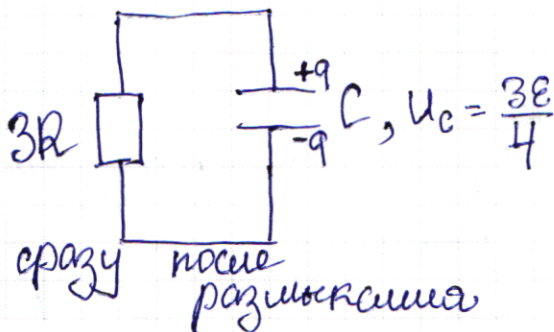 +q
3R
C, U_c = 3ε/4
-q
сразу после
размыкания